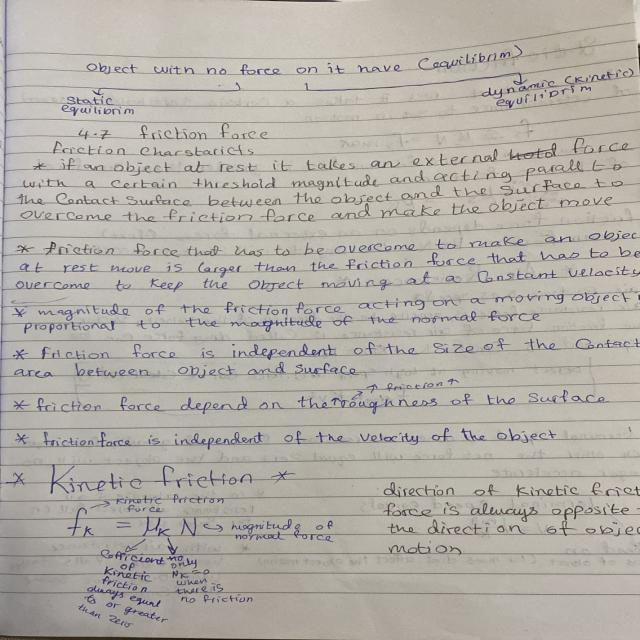 object with no force on it have (equilibrim)
static
equilibrim
dynamic (kinetic)
equilibrim
4.7 friction force
friction charstaricts
* if an object at rest it takes an external force
with a certain threshold magnitude and acting parall to
the Contact surface between the object and the surface to
overcome the friction force and make the object move
* friction force that has to be overcome to make an objec
at rest move is larger than the friction force that has to be
overcome to keep the object moving at a Constant velocity
* magnitude of the friction force acting on a moving object i
proportional to the magnitude of the normal force
* friction force is independent of the size of the Contact
area between object and surface
↗ friction ↑
* friction force depend on the roughness of the surface
* friction force is independent of the velocity of the object
* Kinetic friction *
kinetic friction
force
fK = μK N → magnitude of
normal force
Cofficient
of
kinetic
friction
always equal
to or greater
than zero
no only
μK = 0
when
there is
no friction
direction of kinetic frict
force is always opposite
the direction of objec
motion